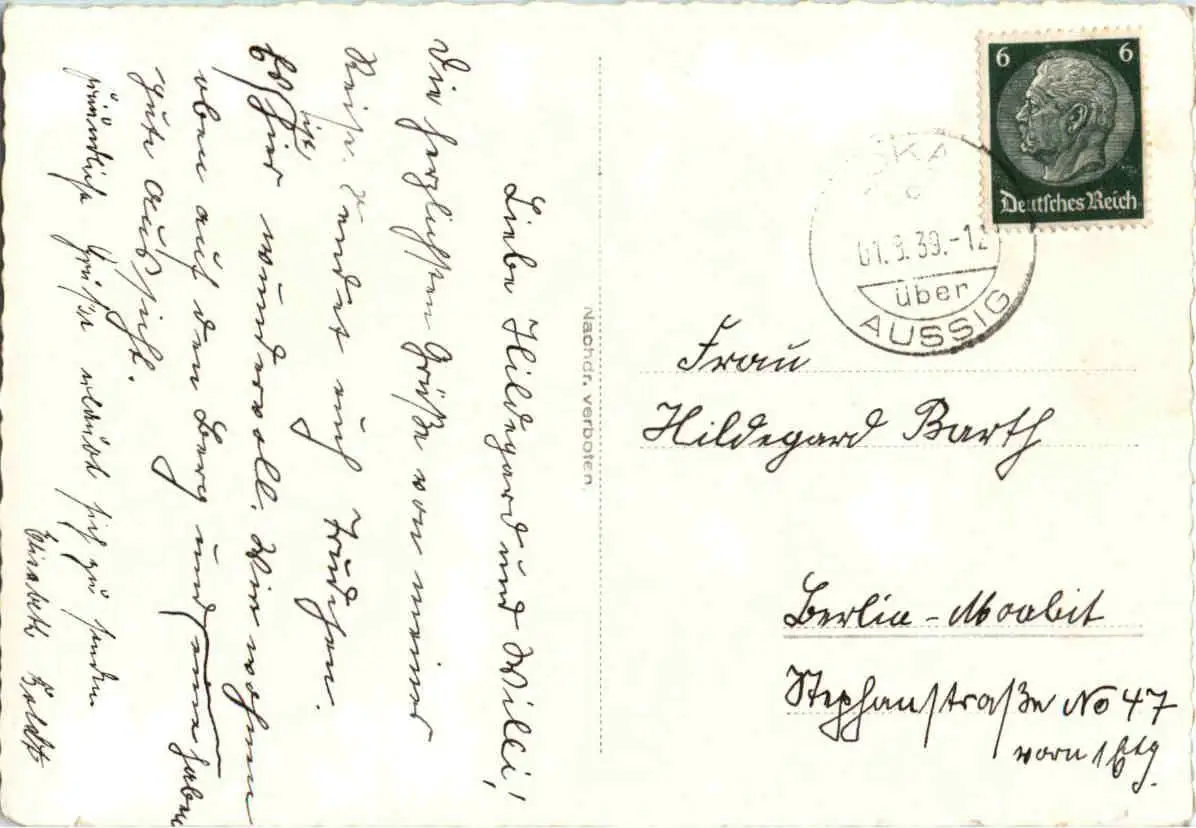 Liebe Hildegard und Willi!
Die herzlichsten Grüße von meiner
Reise sendet euch Trudchen.
Es ist
hier wundervoll. Wir wohnen
oben auf den Berg und haben
gute Aussicht.
Freundliche Grüße erlaubt sich zu senden
Elisabeth
Nachdr. verboten.
6 6
Deutsches Reich
SKA
c
01.9.39.-12
über
AUSSIG
Frau
Hildegard Barth
Berlin-Moabit
Stephanstraße No 47
vorn 1 Etg.